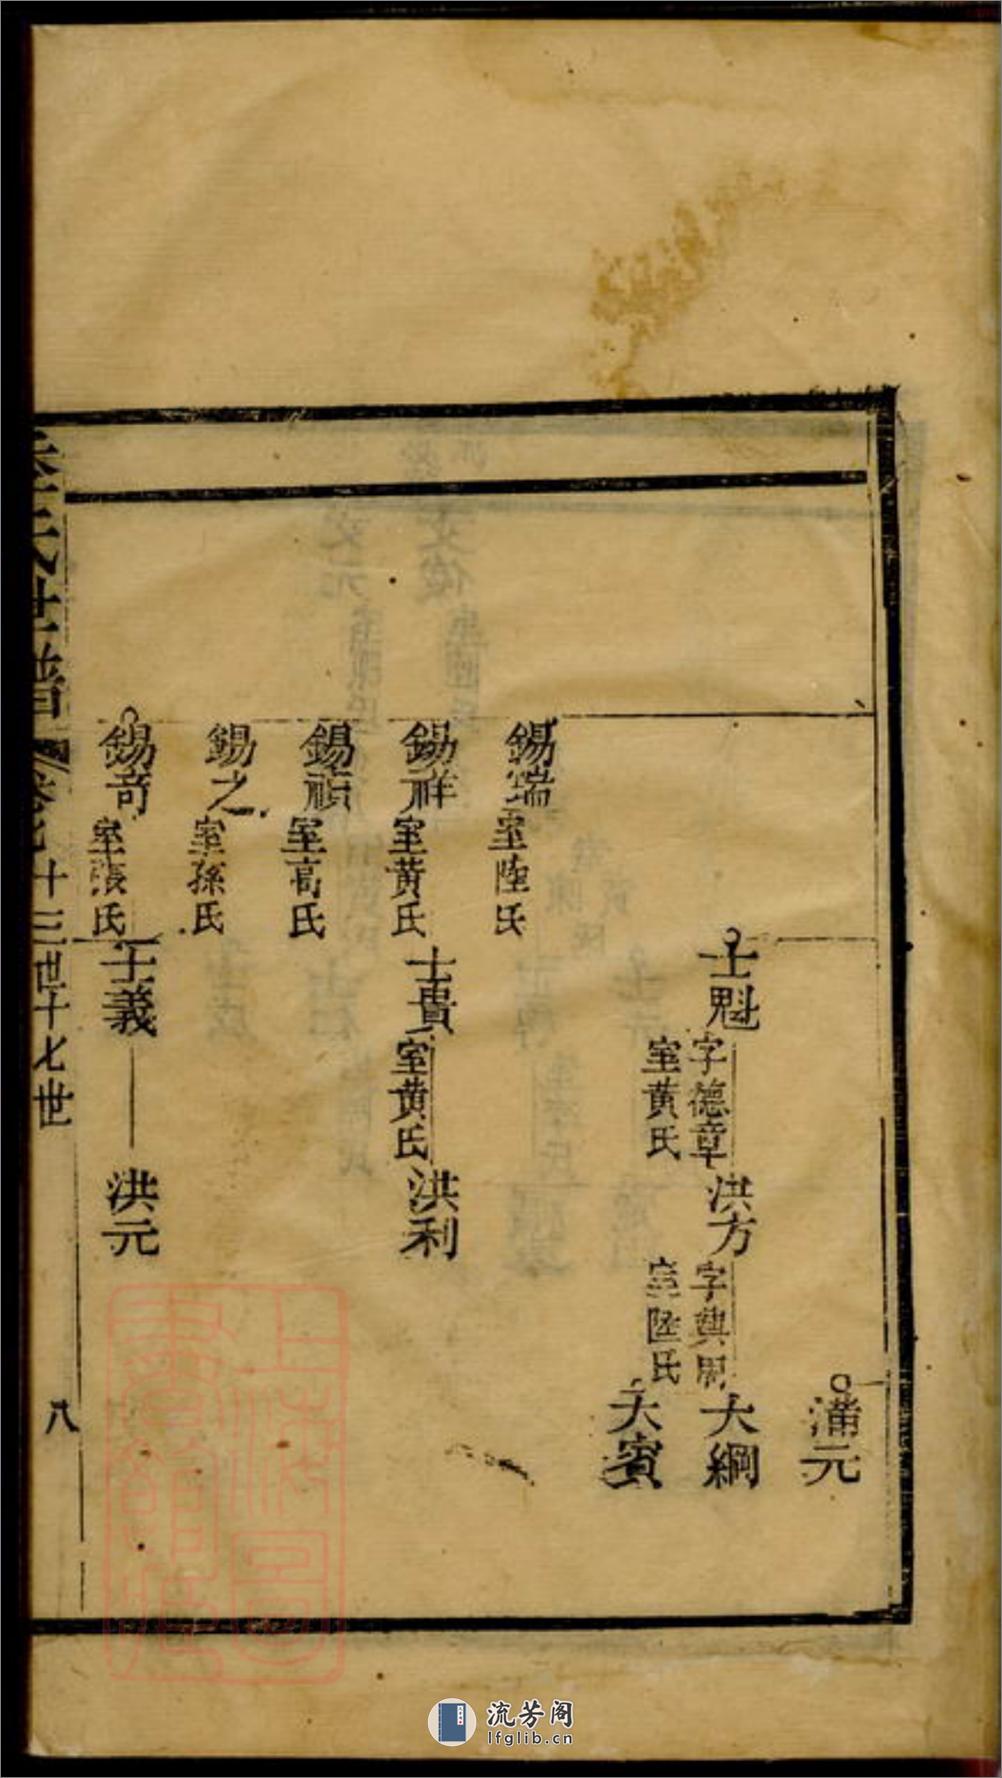 满元
士魁
字德章
室黄氏
洪方
字興周
室陸氏
大綱
大賓
錫瑞
室陸氏
錫祥
室黄氏
士貴
室黄氏
洪利
錫禎
室高氏
錫之
室孫氏
錫奇
室張氏
士義
洪元
氏世譜
卷七
十三世十七世
八
上海圖書館藏
流芳阁
lfglib.cn